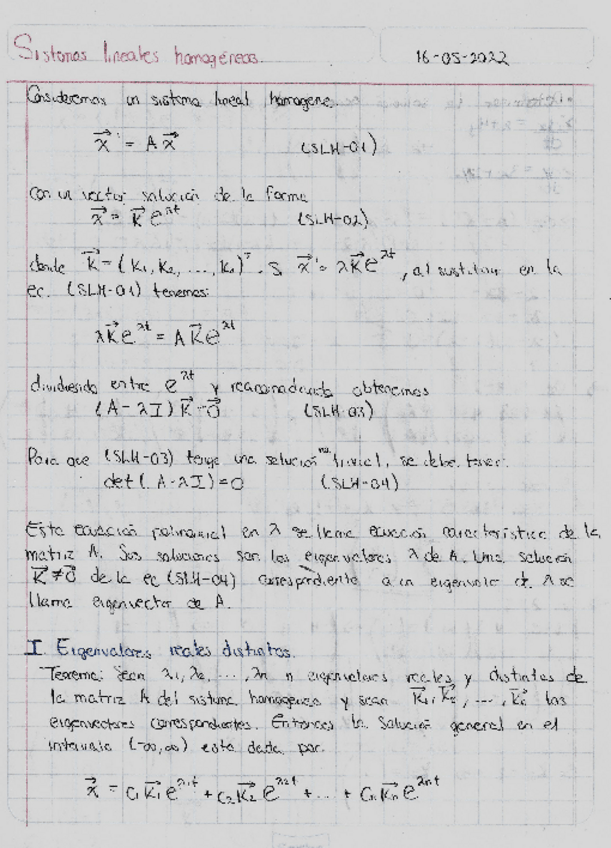 Sistemas lineales homogéneos.
16-05-2022
Consideremos un sistema lineal homogeneo.
x⃗' = A x⃗ (SLH-01)
Con un vector solución de la forma
x⃗ = K⃗ e^λt (SLH-02)
donde K⃗ = (K₁, K₂, ..., Kₙ)ᵀ. Si x⃗' = λK⃗e^λt, al sustituir en la
ec. (SLH-01) tenemos:
λK⃗e^λt = A K⃗e^λt
dividiendo entre e^λt y reacomodando obtenemos
(A - λI) K⃗ = 0⃗ (SLH-03)
Para que (SLH-03) tenga una solución no trivial, se debe tener:
det(A - λI) = 0 (SLH-04)
Esta ecuación polinomial en λ se llama ecuación característica de la
matriz A. Sus soluciones son los eigenvalores λ de A. Una solución
K⃗ ≠ 0⃗ de la ec (SLH-04) correspondiente a un eigenvalor de A se
llama eigenvector de A.
I. Eigenvalores reales distintos.
Teorema: Sean λ₁, λ₂, ..., λₙ n eigenvalores reales y distintos de
la matriz A del sistema homogéneo y sean K⃗₁, K⃗₂, ..., K⃗ₙ los
eigenvectores correspondientes. Entonces la solución general en el
intervalo (-∞,∞) está dada por
x⃗ = C₁K⃗₁e^λ₁t + C₂K⃗₂e^λ₂t + ... + CₙK⃗ₙe^λₙt